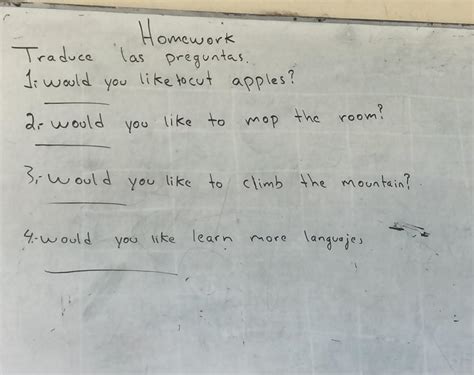 Homework
Traduce las preguntas.
1.- would you like to cut apples?
2.- would you like to mop the room?
3.- would you like to climb the mountain?
4.- would you like learn more languajes